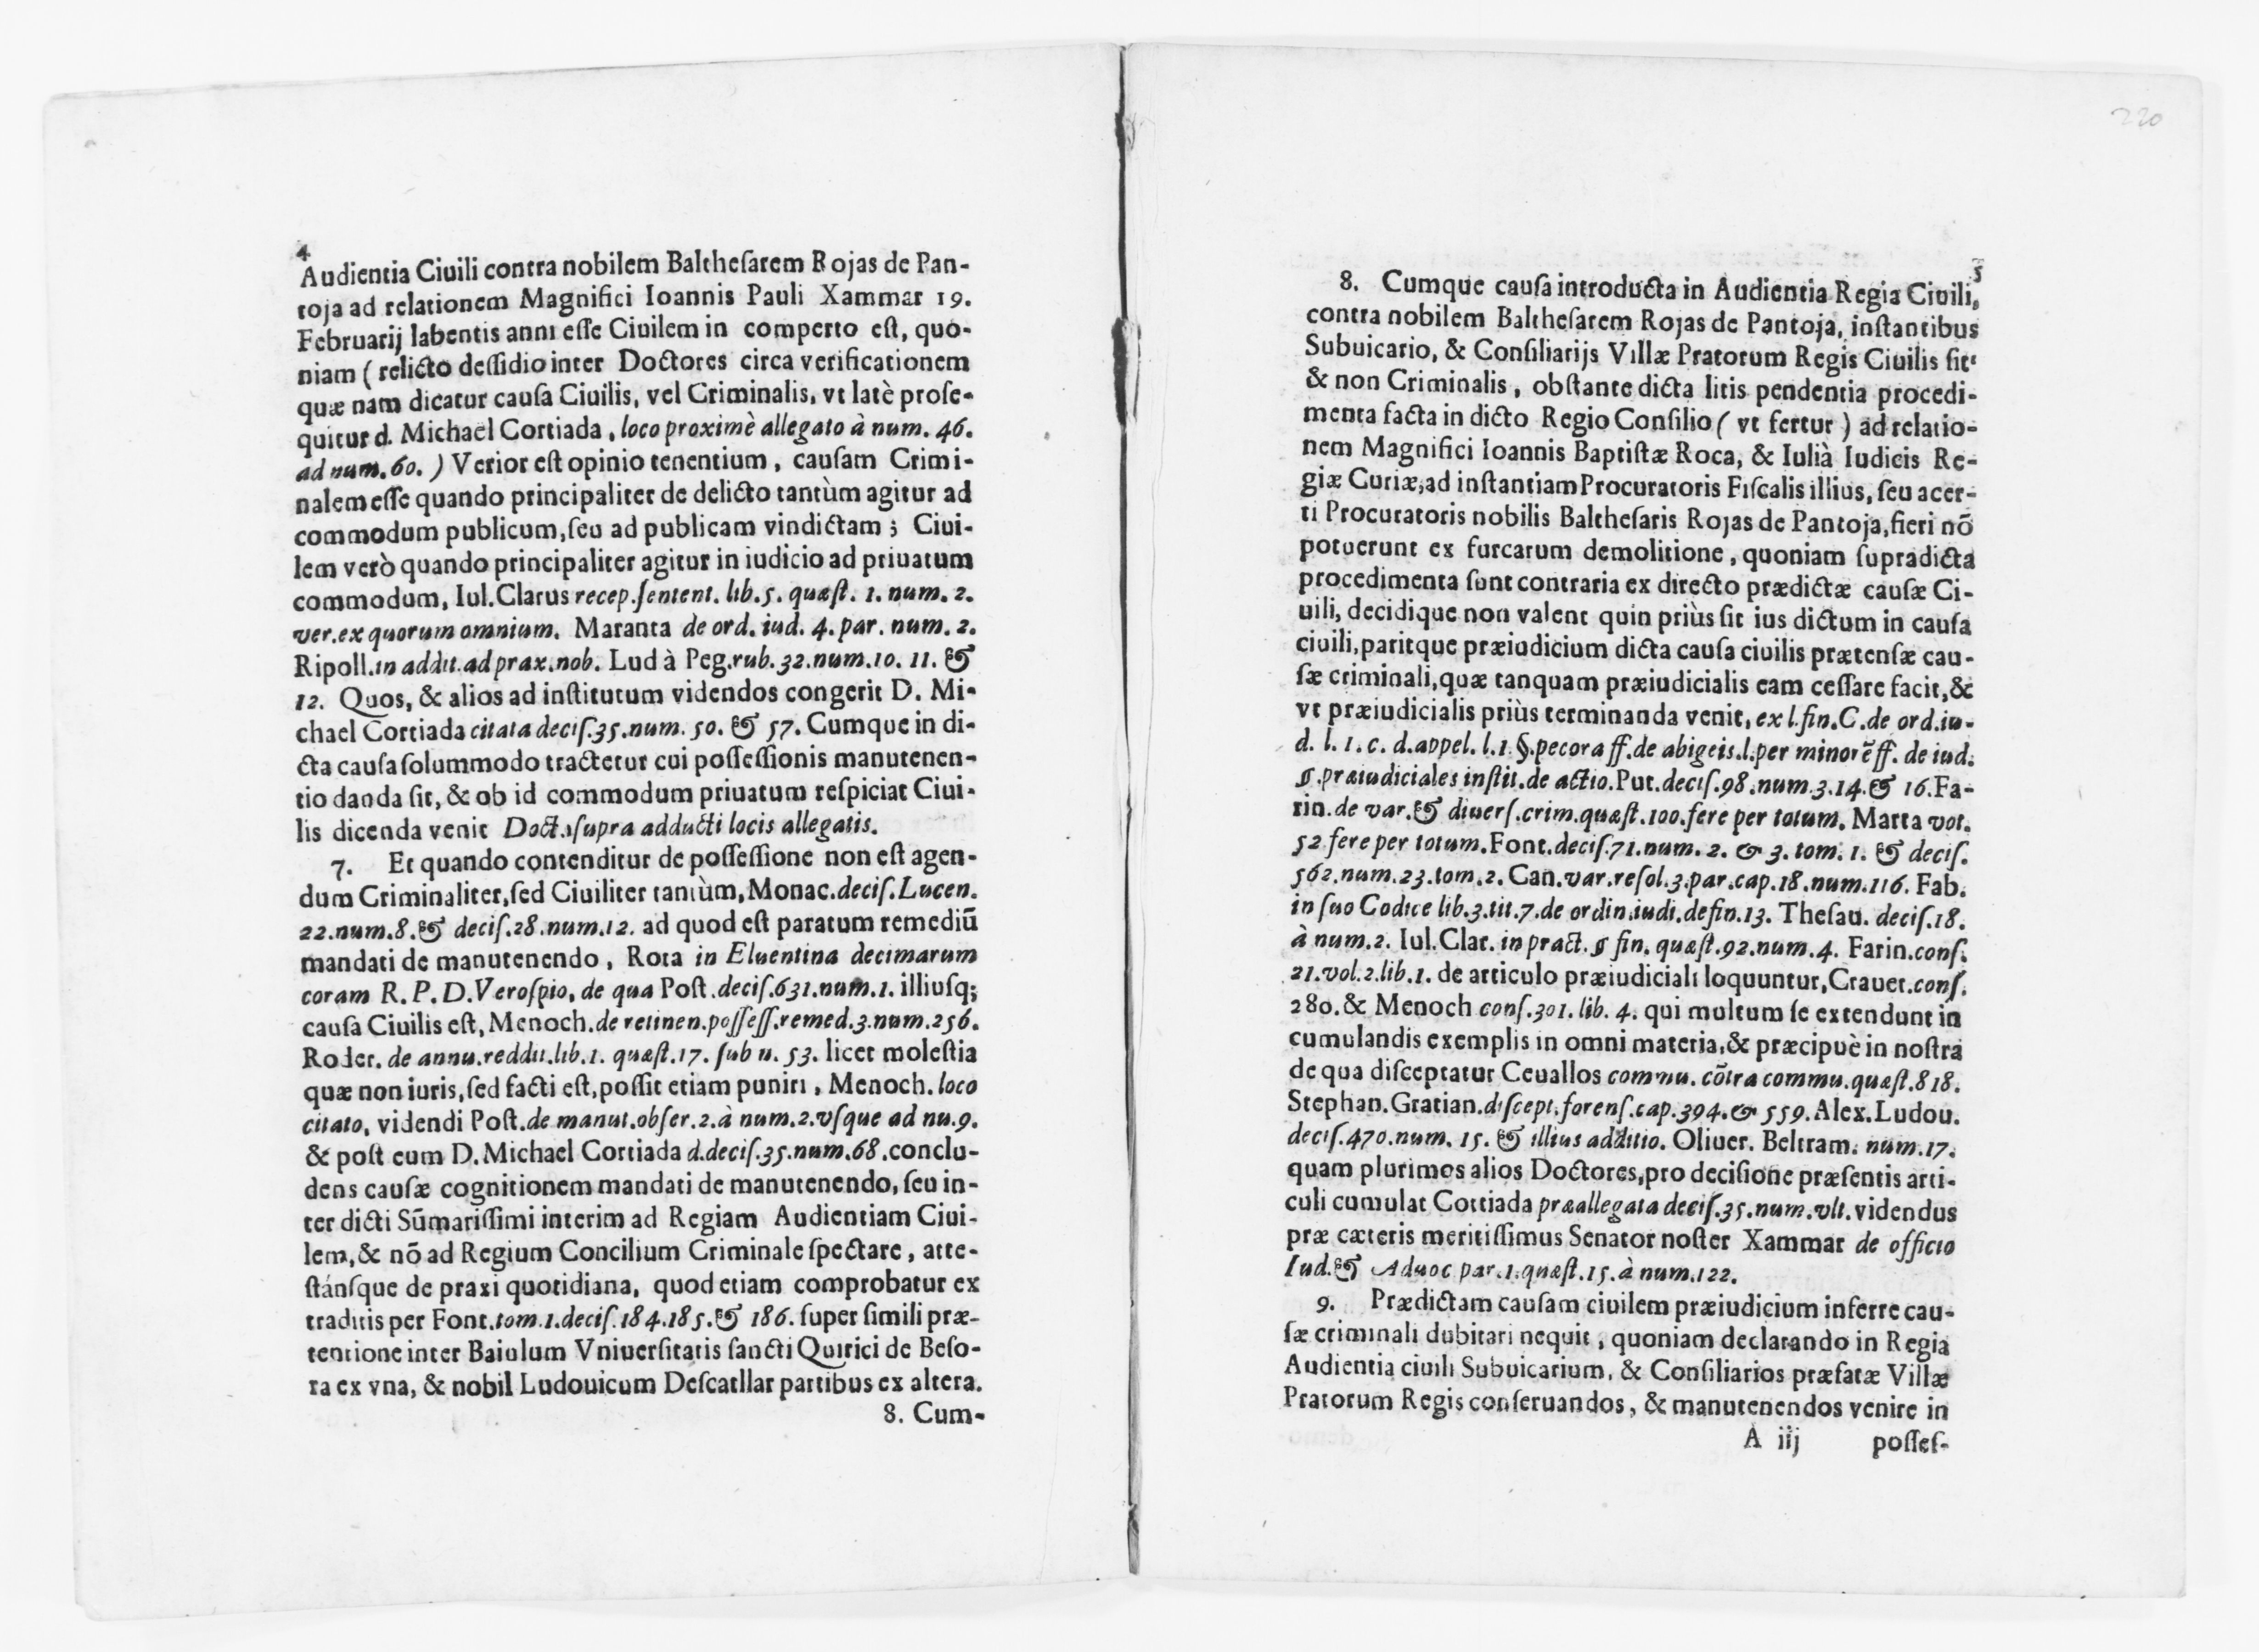 4
Audientia Ciuili contra nobilem Baltheſarem Rojas de Pan-
toja ad relationem Magnifici Ioannis Pauli Xammar 19.
Februarij labentis anni eſſe Ciuilem in comperto eſt, quo-
niam ( relicto deſſidio inter Doctores circa verificationem
quæ nam dicatur cauſa Ciuilis, vel Criminalis, vt latè proſe-
quitur d. Michael Cortiada, loco proximè allegato à num. 46.
ad num. 60. ) Verior eſt opinio tenentium, cauſam Crimi-
nalem eſſe quando principaliter de delicto tantùm agitur ad
commodum publicum, ſeu ad publicam vindictam ; Ciui-
lem verò quando principaliter agitur in iudicio ad priuatum
commodum, Iul. Clarus recep. ſentent. lib. 5. quæſt. 1. num. 2.
ver. ex quorum omnium. Maranta de ord. iud. 4. par. num. 2.
Ripoll. in addit. ad prax. nob. Lud à Peg. rub. 32. num. 10. 11. &
12. Quos, & alios ad inſtitutum videndos congerit D. Mi-
chael Cortiada citata deciſ. 35. num. 50. & 57. Cumque in di-
cta cauſa ſolummodo tractetur cui poſſeſſionis manutenen-
tio danda ſit, & ob id commodum priuatum reſpiciat Ciui-
lis dicenda venit Doct. ſupra adducti locis allegatis.
7. Et quando contenditur de poſſeſſione non eſt agen-
dum Criminaliter, ſed Ciuiliter tantùm, Monac. deciſ. Lucen.
22. num. 8. & deciſ. 28. num. 12. ad quod eſt paratum remediū
mandati de manutenendo, Rota in Eluentina decimarum
coram R. P. D. Veroſpio, de qua Poſt. deciſ. 631. num. 1. illiuſq;
cauſa Ciuilis eſt, Menoch. de retinen. poſſeſſ. remed. 3. num. 256.
Roder. de annu. reddit. lib. 1. quæſt. 17. ſub n. 53. licet moleſtia
quæ non iuris, ſed facti eſt, poſſit etiam puniri, Menoch. loco
citato, videndi Poſt. de manut. obſer. 2. à num. 2. vſque ad nu. 9.
& poſt eum D. Michael Cortiada d. deciſ. 35. num. 68. conclu-
dens cauſæ cognitionem mandati de manutenendo, ſeu in-
ter dicti Sūmariſſimi interim ad Regiam Audientiam Ciui-
lem, & nō ad Regium Concilium Criminale ſpectare, atte-
ſtánſque de praxi quotidiana, quod etiam comprobatur ex
traditis per Font. tom. 1. deciſ. 184. 185. & 186. ſuper ſimili præ-
tentione inter Baiulum Vniuerſitatis ſancti Quirici de Beſo-
ra ex vna, & nobil Ludouicum Deſcatllar partibus ex altera.
8. Cum-
220
5
8. Cumque cauſa introducta in Audientia Regia Ciuili,
contra nobilem Baltheſarem Rojas de Pantoja, inſtantibus
Subuicario, & Conſiliarijs Villæ Pratorum Regis Ciuilis ſit
& non Criminalis, obſtante dicta litis pendentia procedi-
menta facta in dicto Regio Conſilio ( vt fertur ) ad relatio-
nem Magnifici Ioannis Baptiſtæ Roca, & Iulià Iudicis Re-
giæ Curiæ, ad inſtantiam Procuratoris Fiſcalis illius, ſeu acer-
ti Procuratoris nobilis Baltheſaris Rojas de Pantoja, fieri nō
potuerunt ex furcarum demolitione, quoniam ſupradicta
procedimenta ſunt contraria ex directo prædictæ cauſæ Ci-
uili, decidique non valent quin priùs ſit ius dictum in cauſa
ciuili, paritque præiudicium dicta cauſa ciuilis prætenſæ cau-
ſæ criminali, quæ tanquam præiudicialis eam ceſſare facit, &
vt præiudicialis priùs terminanda venit, ex l. fin. C. de ord. iu-
d. l. 1. c. d. appel. l. 1 §. pecora ff. de abigeis. l. per minorē ff. de iud.
§. præiudiciales inſtit. de actio. Put. deciſ. 98. num. 3. 14. & 16. Fa-
rin. de var. & diuerſ. crim. quæſt. 100. fere per totum. Marta vot.
52 fere per totum. Font. deciſ. 71. num. 2. & 3. tom. 1. & deciſ.
562. num. 23. tom. 2. Can. var. reſol. 3. par. cap. 18. num. 116. Fab.
in ſuo Codice lib. 3. tit. 7. de ordin. iudi. defin. 13. Theſau. deciſ. 18.
à num. 2. Iul. Clar. in pract. § fin. quæſt. 92. num. 4. Farin. conſ.
21. vol. 2. lib. 1. de articulo præiudiciali loquuntur, Crauet. conſ.
280. & Menoch conſ. 301. lib. 4. qui multum ſe extendunt in
cumulandis exemplis in omni materia, & præcipuè in noſtra
de qua diſceptatur Ceuallos commu. cōtra commu. quæſt. 818.
Stephan. Gratian. diſcept. forenſ. cap. 394. & 559. Alex. Ludou.
deciſ. 470. num. 15. & illius additio. Oliuer. Beltram. num. 17.
quam plurimos alios Doctores, pro deciſione præſentis arti-
culi cumulat Cortiada præallegata deciſ. 35. num. vlt. videndus
præ cæteris meritiſſimus Senator noſter Xammar de officio
Iud. & Aduoc par. 1. quæſt. 15. à num. 122.
9. Prædictam cauſam ciuilem præiudicium inferre cau-
ſæ criminali dubitari nequit, quoniam declarando in Regia
Audientia ciuili Subuicarium, & Conſiliarios præfatæ Villæ
Pratorum Regis conſeruandos, & manutenendos venire in
A iij poſſeſ-